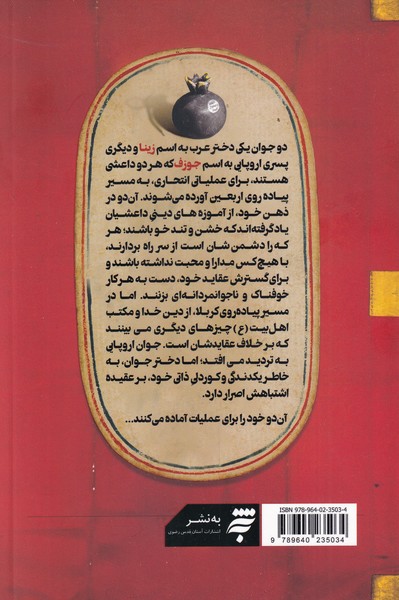 دو جوان یکی دختر عرب به اسم زینا و دیگری
پسری اروپایی به اسم جوزف که هر دو داعشی
هستند، برای عملیاتی انتحاری، به مسیر
پیاده روی اربعین آورده می‌شوند. آن‌دو در
ذهن خود، از آموزه های دینیِ داعشیان
یاد گرفته‌اند که خشن و تند خو باشند؛ هر
که را دشمن شان است از سر راه بردارند،
با هیچ کس مدارا و محبت نداشته باشند و
برای گسترش عقاید خود، دست به هر کار
خوفناک و ناجوانمردانه‌ای بزنند. اما در
مسیر پیاده‌روی کربلا، از دین خدا و مکتب
اهل‌بیت (ع) چیزهای دیگری می بینند
که بر خلاف عقایدشان است. جوان اروپایی
به تردید می افتد؛ اما دختر جوان، به
خاطر یکدندگی و کوردلی ذاتی خود، بر عقیده
اشتباهش اصرار دارد.
آن‌دو خود را برای عملیات آماده می‌کنند...
به نشر
انتشارات آستان قدس رضوی
ISBN 978-964-02-3503-4
9 789640 235034